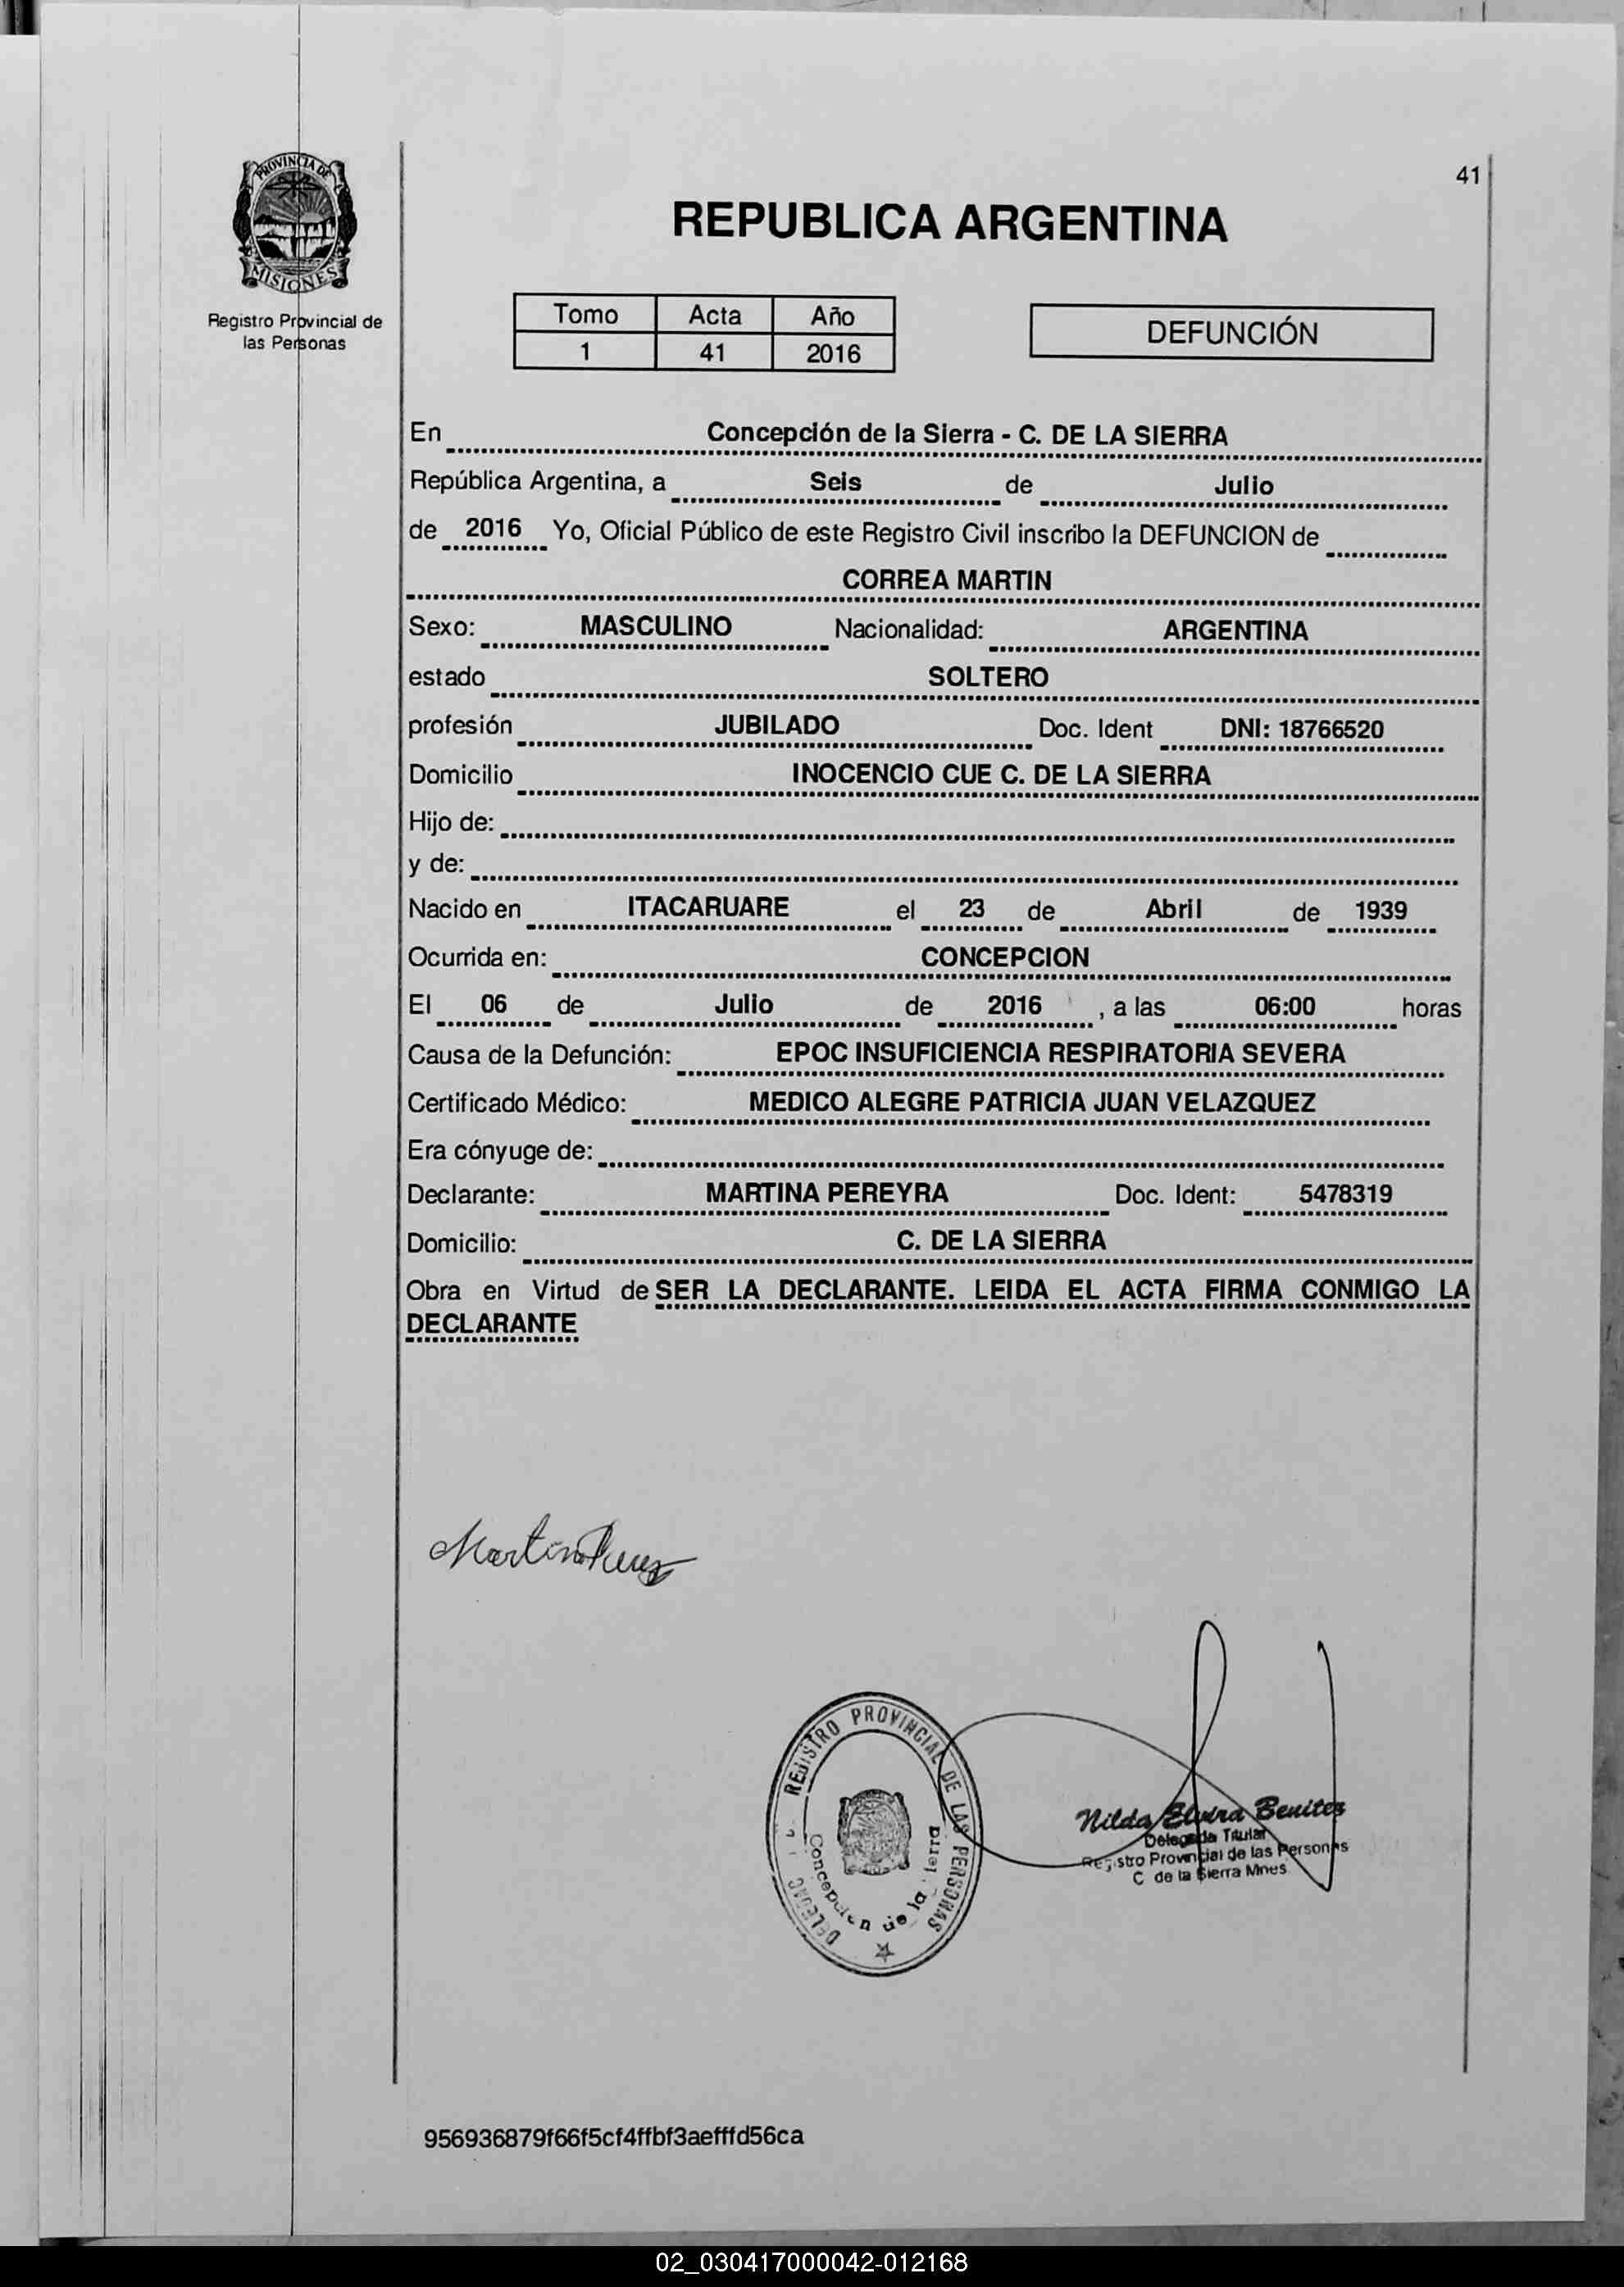 41
PROVINCIA DE
MISIONES
Registro Provincial de
las Personas
REPUBLICA ARGENTINA
Tomo Acta Año
1 41 2016
DEFUNCIÓN
En Concepción de la Sierra - C. DE LA SIERRA
República Argentina, a Seis de Julio
de 2016 Yo, Oficial Público de este Registro Civil inscribo la DEFUNCION de
CORREA MARTIN
Sexo: MASCULINO Nacionalidad: ARGENTINA
estado SOLTERO
profesión JUBILADO Doc. Ident DNI: 18766520
Domicilio INOCENCIO CUE C. DE LA SIERRA
Hijo de:
y de:
Nacido en ITACARUARE el 23 de Abril de 1939
Ocurrida en: CONCEPCION
El 06 de Julio de 2016 , a las 06:00 horas
Causa de la Defunción: EPOC INSUFICIENCIA RESPIRATORIA SEVERA
Certificado Médico: MEDICO ALEGRE PATRICIA JUAN VELAZQUEZ
Era cónyuge de:
Declarante: MARTINA PEREYRA Doc. Ident: 5478319
Domicilio: C. DE LA SIERRA
Obra en Virtud de SER LA DECLARANTE. LEIDA EL ACTA FIRMA CONMIGO LA
DECLARANTE
REGISTRO PROVINCIAL DE LAS PERSONAS
Concepción de la
Nilda Elvira Benitez
Delegada Titular
Registro Provincial de las Personas
C de la Sierra Mnes
956936879f66f5cf4ffbf3aefffd56ca
02_030417000042-012168